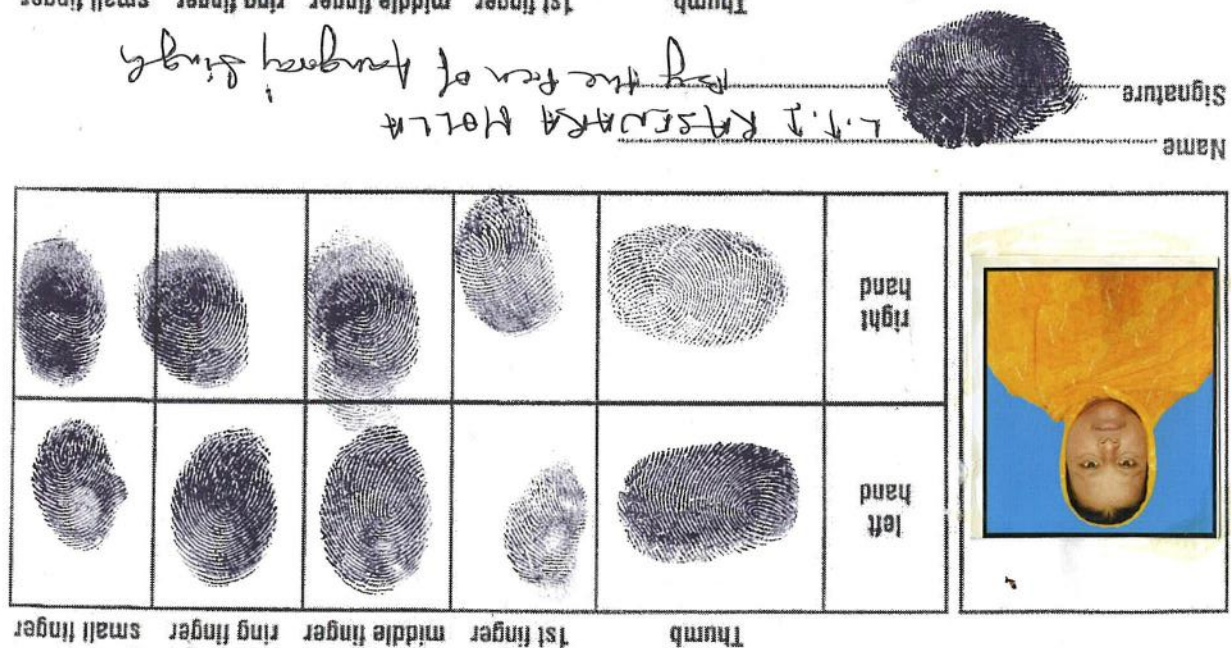 Thumb 1st finger middle finger ring finger small finger
left hand
right hand
Name L.T.I RASENARA MOLLA
Signature By the Pen of Singh
Thumb 1st finger middle finger ring finger small finger